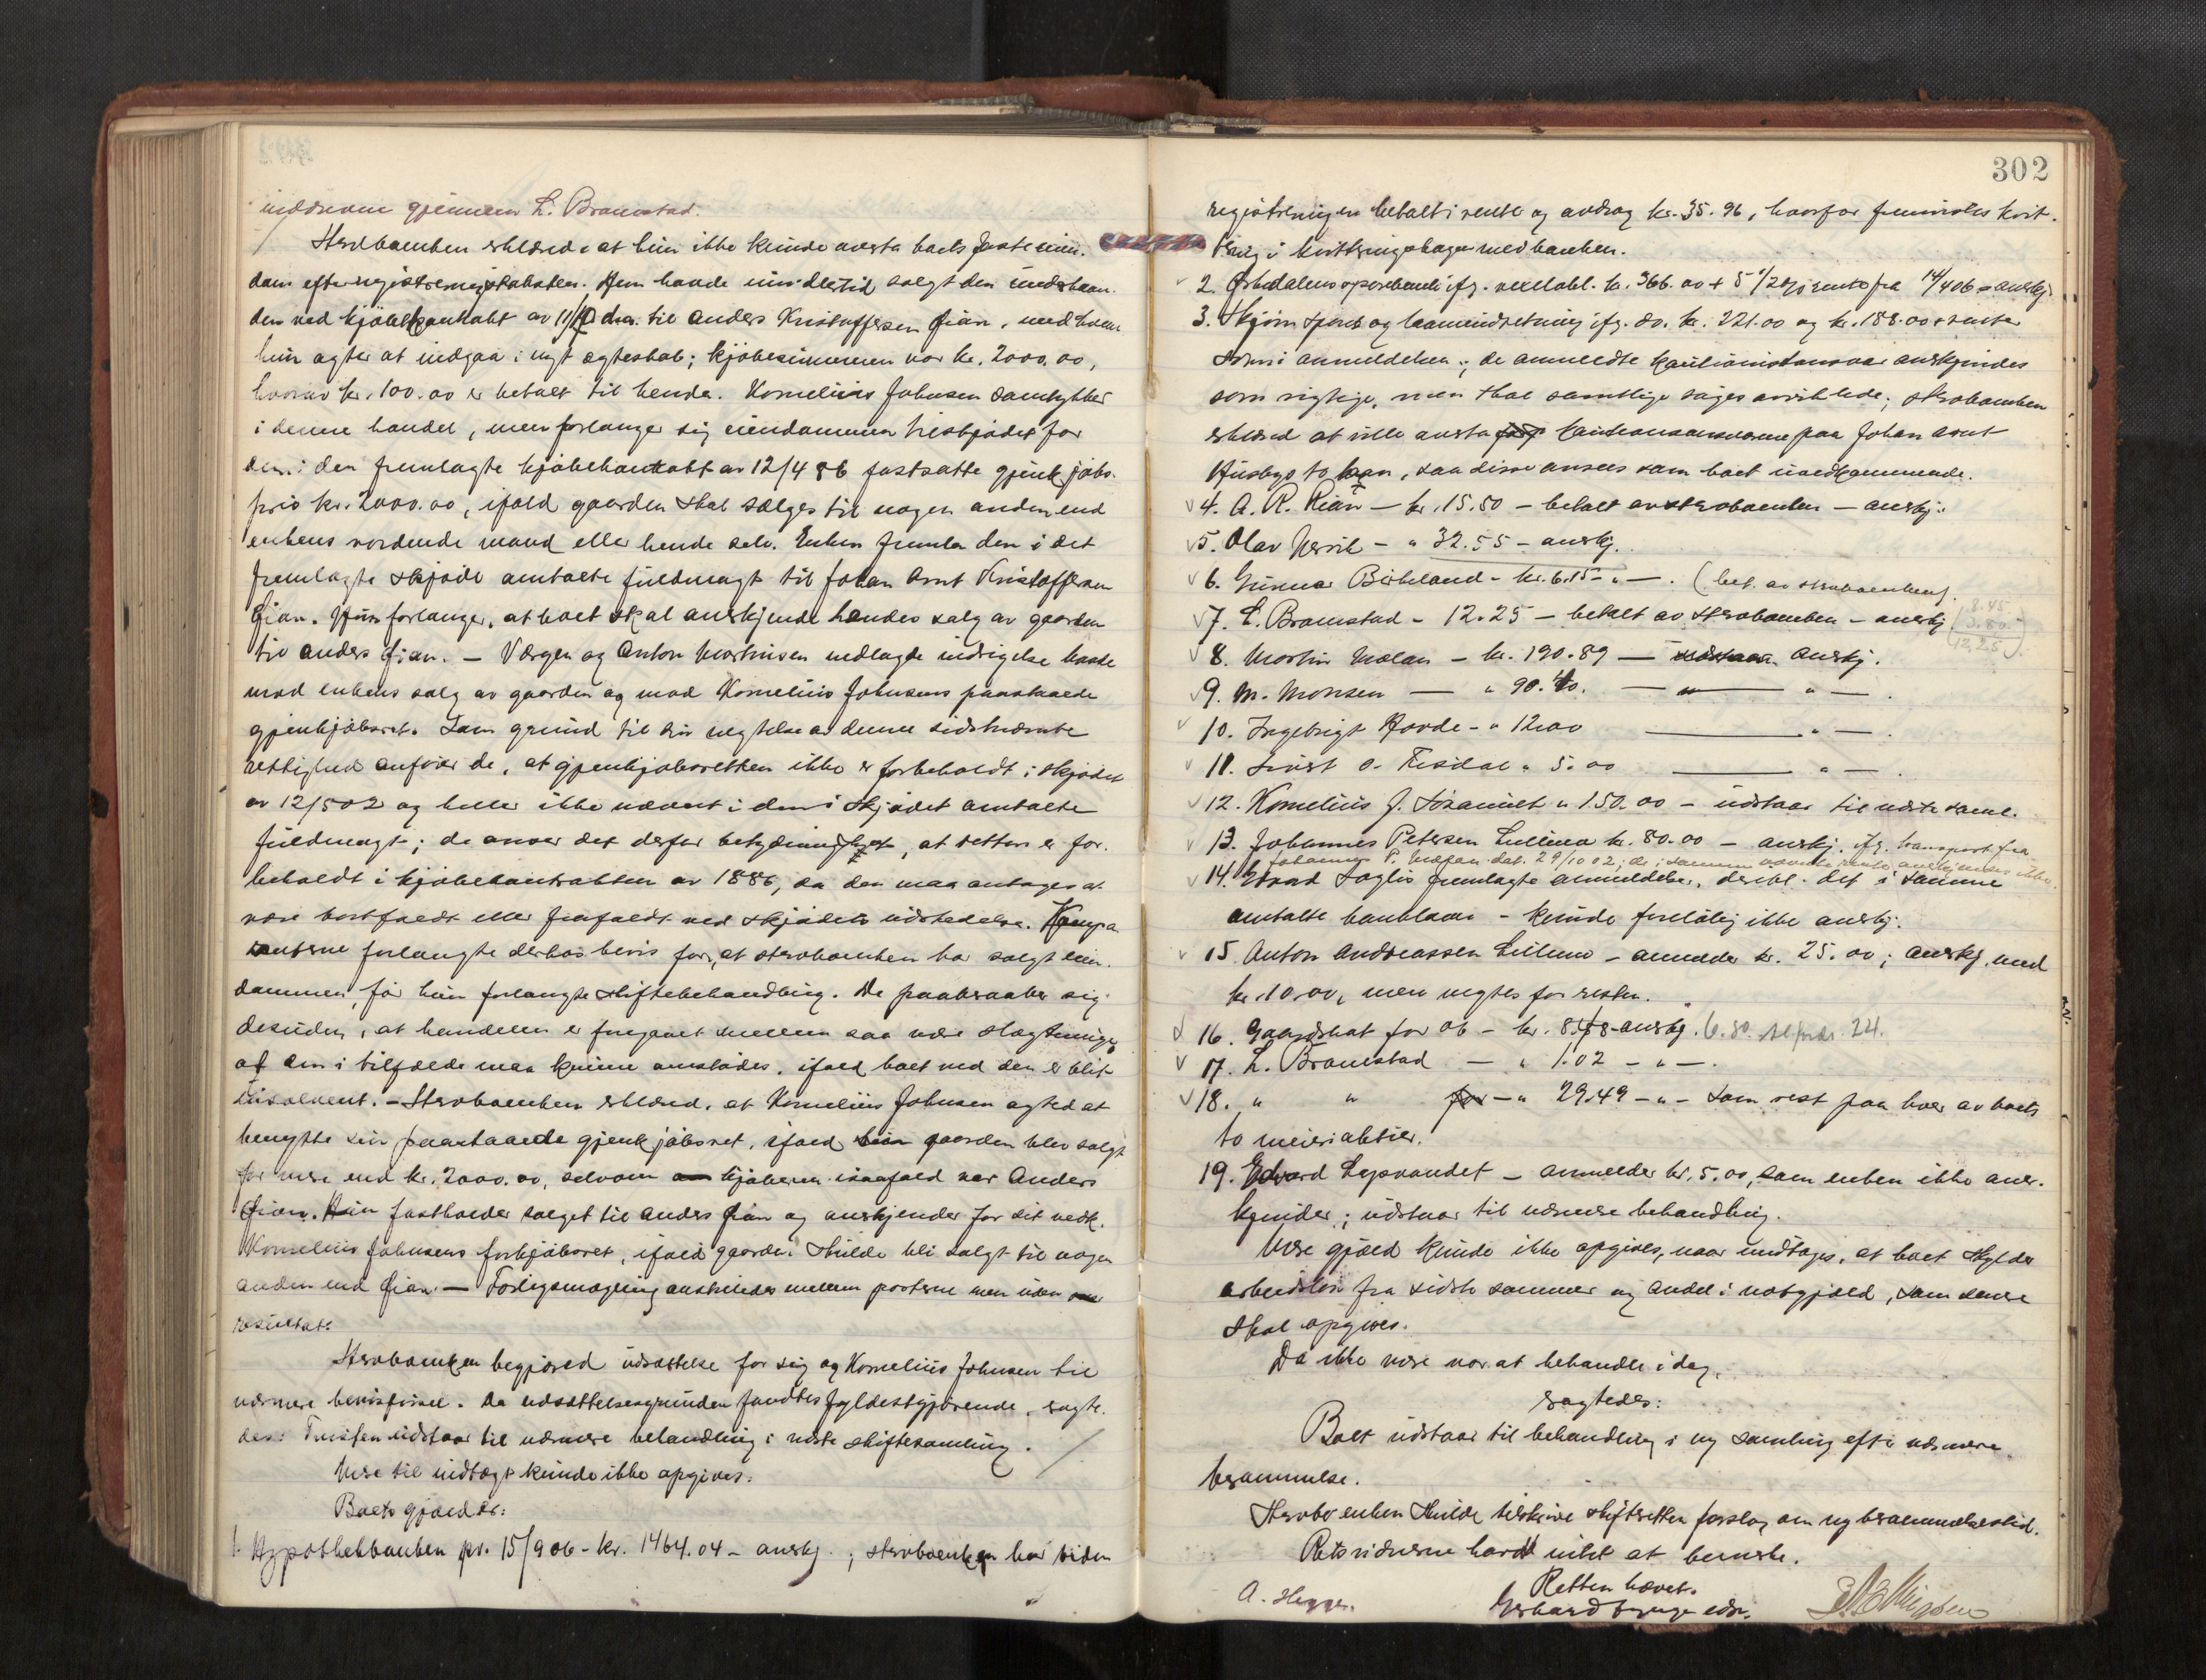 inddrevne gjennem L. Bromstad.
Stervboenken erklærede at hun ikke kunde overta boets faste eien-
dom efter registreringstaksten. Hun havde imidlertid solgt den underhaan-
den ved kjøbekontrakt av 11/10 d.a. til Anders Kristoffersen Rian, med hvem
hun agter at indgaa i nyt egteskab; kjøbesummen var kr. 2000.00,
hvorav kr. 100.00 er betalt til hende. Kornelius Johnsen samtykker
i denne handel, men forlanger sig eiendommen tilskjødet for
den i den fremlagte kjøbekontrakt av 12/4 86 fastsatte gjenkjøbs-
pris kr. 2000.00, ifald gaarden skal sælges til nogen anden end
enkens vordende mand eller hende selv. Enken fremla den i det
fremlagte skjøde omtalte fuldmagt til Johan Arnt Kristoffersen
Rian. Hun forlanger, at boet skal anerkjende hendes salg av gaarden
til Anders Rian. — Værgen og Anton Martinsen nedlagde indsigelse baade
mod enkens salg av gaarden og mod Kornelius Johnsens paastaaede
gjenkjøbsret. Som grund til sin negtelse av denne sidstnævnte
rettighed anfører de, at gjenkjøbsretten ikke er forbeholdt i skjødet
av 12/5 02 og heller ikke nævnt i den i skjødet omtalte
fuldmagt; de anser det derfor betydningsløst, at retten er for-
beholdt i kjøbekontrakten av 1886, da den maa antages at
være bortfaldt eller frafaldt ved skjødets udstedelse. Kompa-
renterne forlangte derhos bevis for, at stervboenken har solgt eien-
dommen, før hun forlangte skiftebehandling. De paaberaaber sig
desuden, at handelen er foregaaet mellem saa nære slegtninge,
at den i tilfælde maa kunne omstødes, ifald boet ved den er blit
insolvent. — Stervboenken erklæred, at Kornelius Johnsen agted at
benytte sin paastaaede gjenkjøbsret, ifald gaarden blev solgt
for mere end kr. 2000.00, selvom kjøberen isaafald var Anders
Rian. Hun fastholder salget til Anders Rian og anerkjender for sit vedk.
Kornelius Johnsens forkjøbsret, ifald gaarden skulde bli solgt til nogen
anden end Rian. — Forligsmægling anstilledes mellem parterne men uden
resultat.
Stervboenken begjæred udsættelse for sig og Kornelius Johnsen til
nærmere bevisførsel. Da udsættelsesgrunden fandtes fyldestgjørende, sagte-
des: Tvisten udstaar til nærmere behandling i næste skiftesamling.
Mere til indtægt kunde ikke opgives.
Boets gjæld er:
1. Hypothekbanken pr. 15/9 06 - kr. 1464.04 - anerkj. ; stervboenken har siden
302
registreringen betalt i rente og avdrag kr. 35.96, hvorfor fremvistes kvit-
tering i kvitteringsbogen med banken.
2. Ørkedalens sparebank ifg. vexelobl. kr. 366.00 + 5 1/2 % rente fra 14/4 06 = anerkj.
3. Stjørn Spare og laaneindretning ifg. do. kr. 221.00 og kr. 188.00 + renter
som i anmeldelsen; de anmeldte kautionistansvar anerkjendes
som rigtige, men skal samtlige søges avviklede; stervboenken
erklæred at ville overta kautionsansvarene paa Johan Arnt
Husbys to laan, saa disse ansees som boet uvedkommende.
4. A. R. Rian — kr. 15.50 - betalt av stervboenken — anerkj.
5. Olav Hersik - " 32.55 - anerkj.
6. Gunnar Birkeland - kr. 6.15 - " — . (bet. av stervboenken).
7. L. Bromstad - 12.25 - betalt av stervboenken - anerkj. (8.45 3.80 12,25).
8. Martin Mælan - kr. 190.89 — anerkj.
9. M. Monsen — " 90.40. — " — " — .
10. Ingebrigt Hovde - " 12.00 — " — .
11. Sivert O. Fisdal " 5.00 — " — .
12. Kornelius J. " 150.00 - udstaar til næste saml.
13. Johannes Petersen Lillemo kr. 80.00 - anerkj. ifg. transport fra
Johannes P. dat. 29/10 02; de i samme nævnte rente anerkjendes ikke.
14. fremlagte anmeldelse, det i samme
omtalte banklaan - kunde foreløbig ikke anerkj.
15. Anton Andreassen Lillemo - anmelder kr. 25.00; anerkj. med
kr. 10.00, men negtes for resten.
16. Gaardskat for 06 - kr. 8.48 - anerkj. 6.80. 24.
17. L. Bromstad — " 1.02 - " — .
18. " " - " 29.49 - " - som rest paa hver av boets
to meieriaktier.
19. Edvard Lysvandet - anmelder kr. 5.00, som enken ikke aner-
kjender; udstaar til nærmere behandling.
Mere gjæld kunde ikke opgives, naar undtages, at boet skylder
arbeidsløn fra sidste sommer og andel i notgjæld, som senere
skal opgives.
Da ikke mere var at behandle i dag,
sagtedes:
Boet udstaar til behandling i ny samling efter nærmere
berammelse.
Stervboenken skulde tilskrive skifteretten forslag om ny berammelsestid.
Retsvidnerne havde intet at bemerke.
Retten hævet.
A. Hegge.